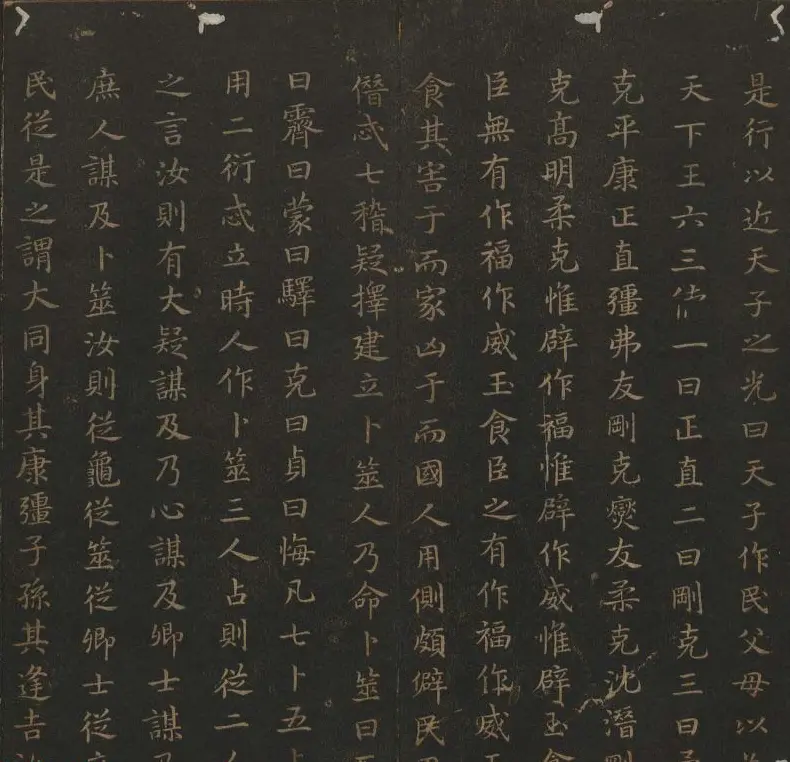 是行以近天子之光曰天子作民父母以
天下王六三一曰正直二曰剛克三曰
克平康正直彊弗友剛克燮友柔克沈潛剛
克髙明柔克惟辟作福惟辟作威惟辟玉食
臣無有作福作威玉食臣之有作福作威玉
食其害于而家凶于而國人用側頗僻民
僭忒七稽疑擇建立卜筮人乃命卜筮曰
曰霽曰蒙曰驛曰克曰貞曰悔凡七卜五占
用二衍忒立時人作卜筮三人占則從二人
之言汝則有大疑謀及乃心謀及卿士謀及
庶人謀及卜筮汝則從龜從筮從卿士從庶
民從是之謂大同身其康彊子孫其逢吉汝